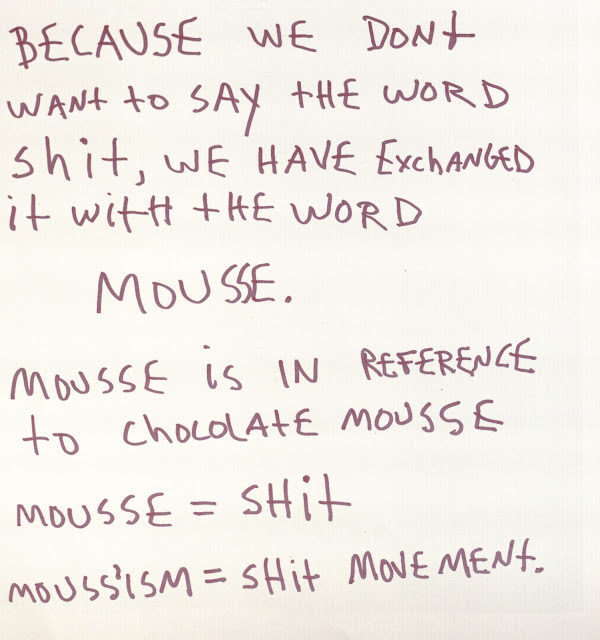 BECAUSE WE DONt
WANt to SAY tHE WORD
shit, WE HAVE ExchANGED
it witH tHE WORD
MOUSSE.
MOUSSE is IN REFERENCE
to ChocolAtE MOUSSE
MOUSSE = SHit
MOUSS'ISM = SHit MOVEMENt.